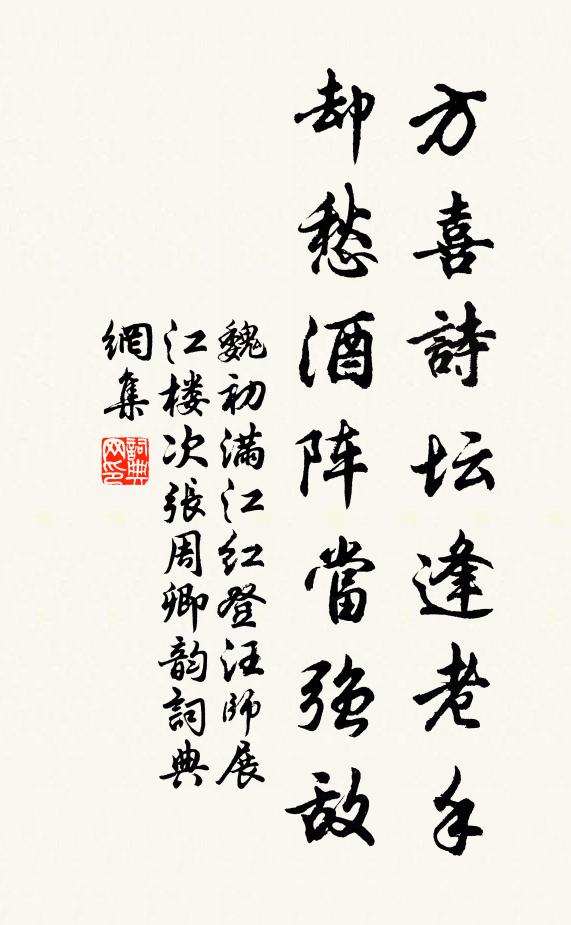 方喜詩坛逢老手
却愁酒阵當強敌
魏初满江红登汪師展
江楼次張周卿韵詞典
網集
詞典
网印